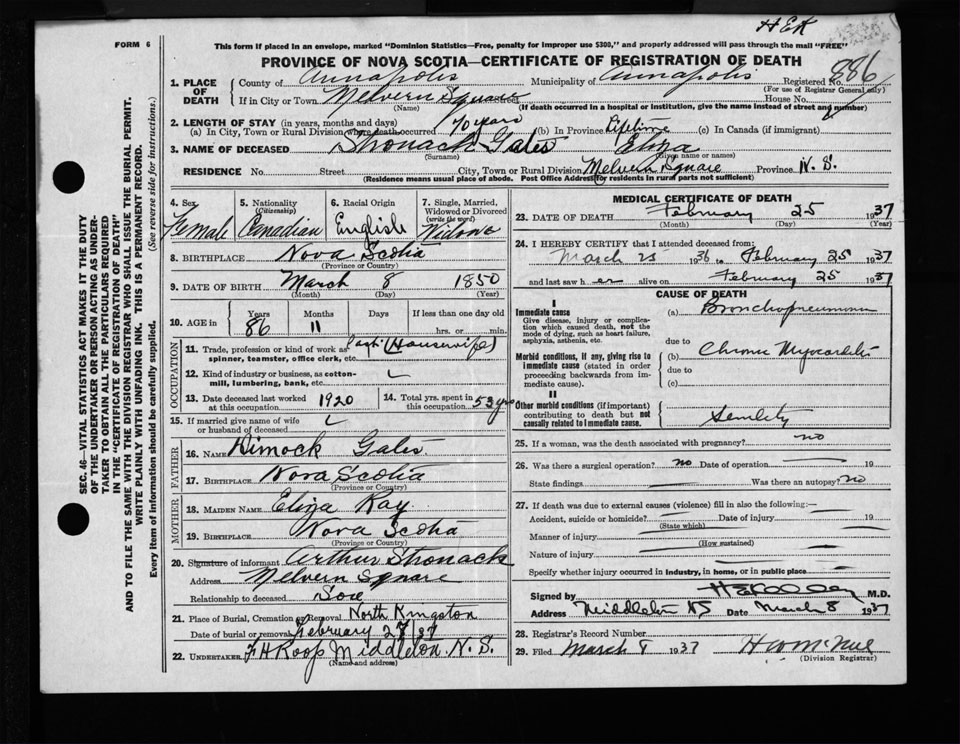 HEK
FORM 6
This form if placed in an envelope, marked "Dominion Statistics—Free, penalty for improper use $300," and properly addressed will pass through the mail "FREE"
PROVINCE OF NOVA SCOTIA—CERTIFICATE OF REGISTRATION OF DEATH
1. PLACE OF DEATH County of Annapolis Municipality of Annapolis Registered No. 886
(For use of Registrar General only)
If in City or Town Melvern Square House No.
(Name) (If death occurred in a hospital or institution, give the name instead of street and number)
2. LENGTH OF STAY (in years, months and days)
(a) In City, Town or Rural Division where death occurred 70 years (b) In Province Lifetime (c) In Canada (if immigrant)
3. NAME OF DECEASED Stronach Gates Eliza
(Surname) (Given name or names)
RESIDENCE No. Street City, Town or Rural Division Melvern Square Province N. S.
(Residence means usual place of abode. Post Office Address for residents in rural parts not sufficient)
4. Sex 5. Nationality (Citizenship) 6. Racial Origin 7. Single, Married, Widowed or Divorced (write the word)
Female Canadian English Widow
8. BIRTHPLACE Nova Scotia
(Province or Country)
9. DATE OF BIRTH March 8 1850
(Month) (Day) (Year)
10. AGE in Years Months Days If less than one day old
86 11 hrs. or min.
OCCUPATION
11. Trade, profession or kind of work as spinner, teamster, office clerk, etc. (Housewife)
12. Kind of industry or business, as cotton-mill, lumbering, bank, etc.
13. Date deceased last worked at this occupation 1920 14. Total yrs. spent in this occupation 53 yrs
15. If married give name of wife or husband of deceased
FATHER
16. NAME Dimock Gates
17. BIRTHPLACE Nova Scotia
(Province or Country)
MOTHER
18. MAIDEN NAME Eliza Ray
19. BIRTHPLACE Nova Scotia
(Province or Country)
20. Signature of informant Arthur Stronach
Address Melvern Square
Relationship to deceased Son
21. Place of Burial, Cremation or Removal North Kingston
Date of burial or removal February 27/37
22. UNDERTAKER F H Roop Middleton N. S.
(Name and address)
MEDICAL CERTIFICATE OF DEATH
23. DATE OF DEATH February 25 1937
(Month) (Day) (Year)
24. I HEREBY CERTIFY that I attended deceased from:
March 25 1936 to February 25 1937
and last saw h er alive on February 25 1937
CAUSE OF DEATH
I
Immediate cause (a) Bronchopneumonia
Give disease, injury or complication which caused death, not the mode of dying, such as heart failure, asphyxia, asthenia, etc.
due to
(b) Chronic Myocarditis
Morbid conditions, if any, giving rise to immediate cause (stated in order proceeding backwards from immediate cause).
due to
(c)
II
Other morbid conditions (if important) contributing to death but not causally related to immediate cause. Senility
25. If a woman, was the death associated with pregnancy? no
26. Was there a surgical operation? no Date of operation 19
State findings Was there an autopsy? no
27. If death was due to external causes (violence) fill in also the following:—
Accident, suicide or homicide? Date of injury 19
(State which)
Manner of injury
(How sustained)
Nature of injury
Specify whether injury occurred in industry, in home, or in public place
Signed by M.D.
Address Middleton NS Date March 8 1937
28. Registrar's Record Number
29. Filed March 8 1937
(Division Registrar)
SEC. 46—VITAL STATISTICS ACT MAKES IT THE DUTY
OF THE UNDERTAKER OR PERSON ACTING AS UNDER-
TAKER TO OBTAIN ALL THE PARTICULARS REQUIRED
IN THE "CERTIFICATE OF REGISTRATION OF DEATH"
AND TO FILE THE SAME WITH THE DIVISION REGISTRAR WHO SHALL ISSUE THE BURIAL PERMIT.
WRITE PLAINLY WITH UNFADING INK. THIS IS A PERMANENT RECORD.
Every item of information should be carefully supplied. (See reverse side for instructions).